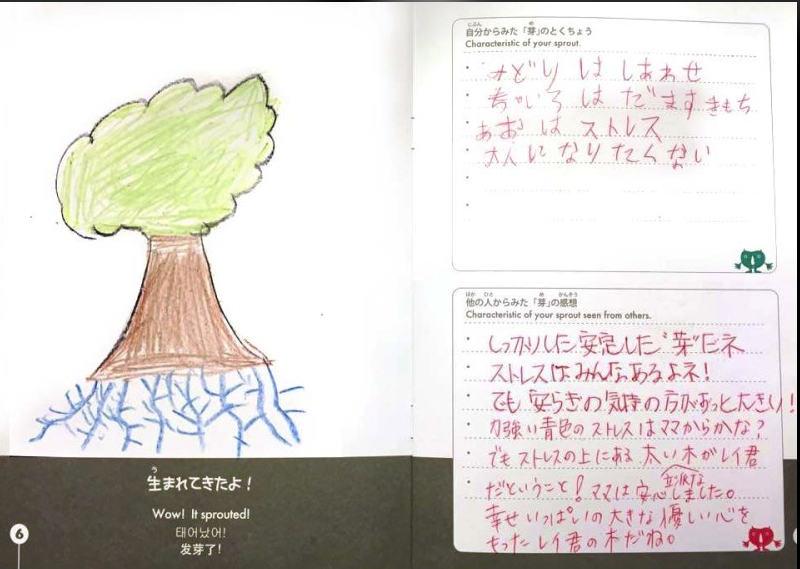 生まれてきたよ！
う
Wow! It sprouted!
태어났어!
发芽了!
6
じぶん め
自分からみた「芽」のとくちょう
Characteristic of your sprout.
みどり は しあわせ
ちゃいろ は だます きもち
あお は ストレス
大人になりたくない
ほか ひと め かんそう
他の人からみた「芽」の感想
Characteristic of your sprout seen from others.
しっかりした安定した"芽"だネ
ストレスはみんなあるよネ！
でも安らぎの気持の方がずっと大きい！
力強い青色のストレスはママからかな？
でもストレスの上にある太い木がレイ君
だということ！ママは安心しました。
立派な
幸せいっぱいの大きな優しい心を
もったレイ君の木だね。